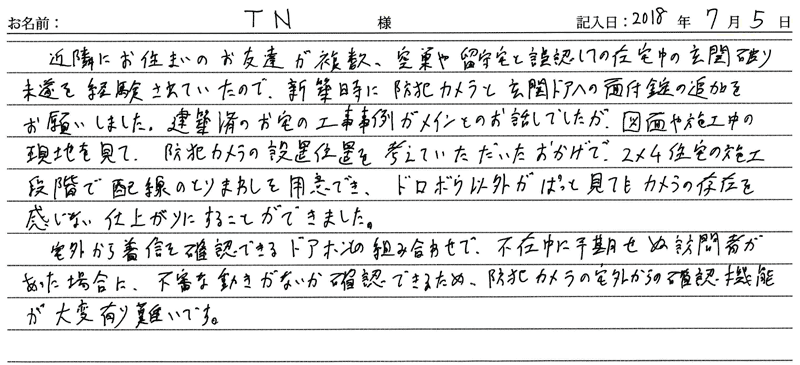 お名前： TN 様 記入日：2018 年 7 月 5 日
近隣にお住まいのお友達が複数、空巣や留守宅と誤認しての在宅中の玄関破り
未遂を経験されていたので、新築時に防犯カメラと玄関ドアへの面付錠の追加を
お願いしました。建築済のお宅の工事事例がメインとのお話でしたが、図面や施工中の
現地を見て、防犯カメラの設置位置を考えていただいたおかげで、2×4住宅の施工
段階で配線のとりまわしを用意でき、ドロボウ以外がぱっと見てもカメラの存在を
感じない仕上がりにすることができました。
宅外から着信を確認できるドアホンとの組み合わせで、不在中に予期せぬ訪問者が
あった場合に、不審な動きがないか確認できるため、防犯カメラの宅外からの確認機能
が大変有り難いです。